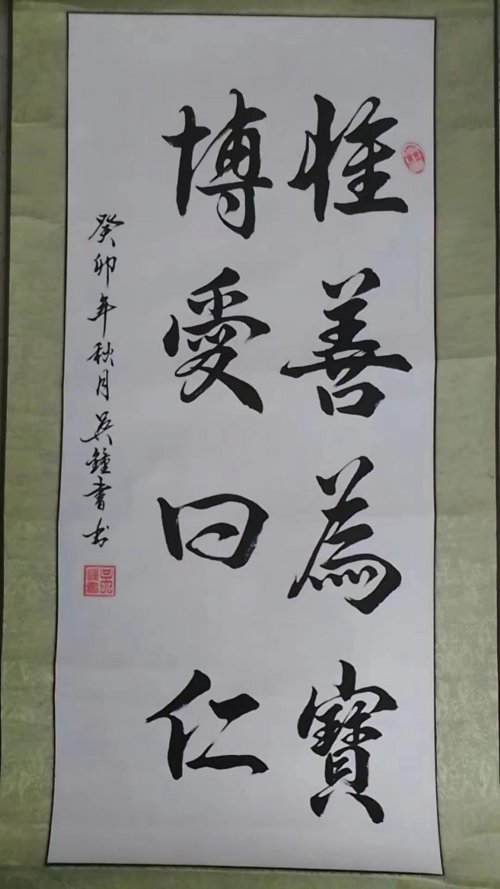 惟善為寶
博愛曰仁
癸卯年秋月吳鐘書书